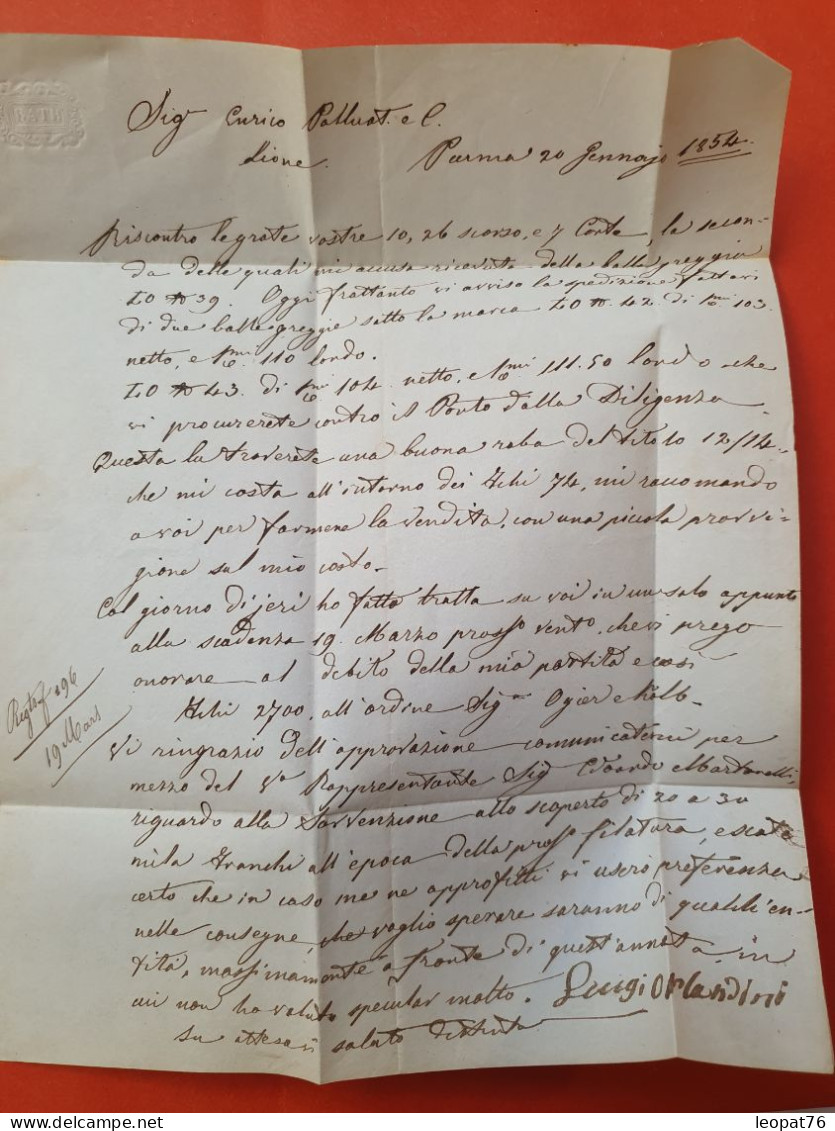 BATH
Sigri Enrico Palluat. e C.
Lione.
Parma 20 Gennajo 1854.
Riscontro le grate vostre 10, 26 scorso, e 7 Corte, la secon-
da delle quali mi accusa ricevuta della balla greggia
LO N 39. Oggi frattanto vi avviso la spedizione fattavi
di due balle greggie sotto la marca LO N. 42. di 103.
netto, e 110 lordo.
LO N 43. di 104. netto, e 111.50 lordo che
vi procurerete contro il Porto dalla Diligenza.
Questa la troverete una buona roba del titolo 12/14.,
che mi costa all'intorno dei fchi 74, mi raccomando
a voi per farmene la vendita, con una piccola provvi-
gione sul mio costo.
Col giorno di jeri ho fatto tratta su voi in un solo appunto
alla scadenza 19. Marzo prosso vento, che vi prego
onorare al debito della mia partita e così
fchi 2700. all'ordine Sig. Ogier e Kolb.
Regtré 196
19 Mars
Vi ringrazio dell'approvazione comunicatemi per
mezzo del Vo Rappresentante Sig Edoardo Martinelli,
riguardo alla Sovvenzione allo scoperto di 20 a 30
mila franchi all'epoca della prossa filatura, e siate
certo che in caso me ne approfitti vi userò preferenza
nelle consegne, che voglio sperare saranno di qualch'en-
tità, massimamente a fronte di quest'annata, in
cui non ho voluto specular molto.
Luigi Orlandini
Su attesa vi saluto distinto
leopat76